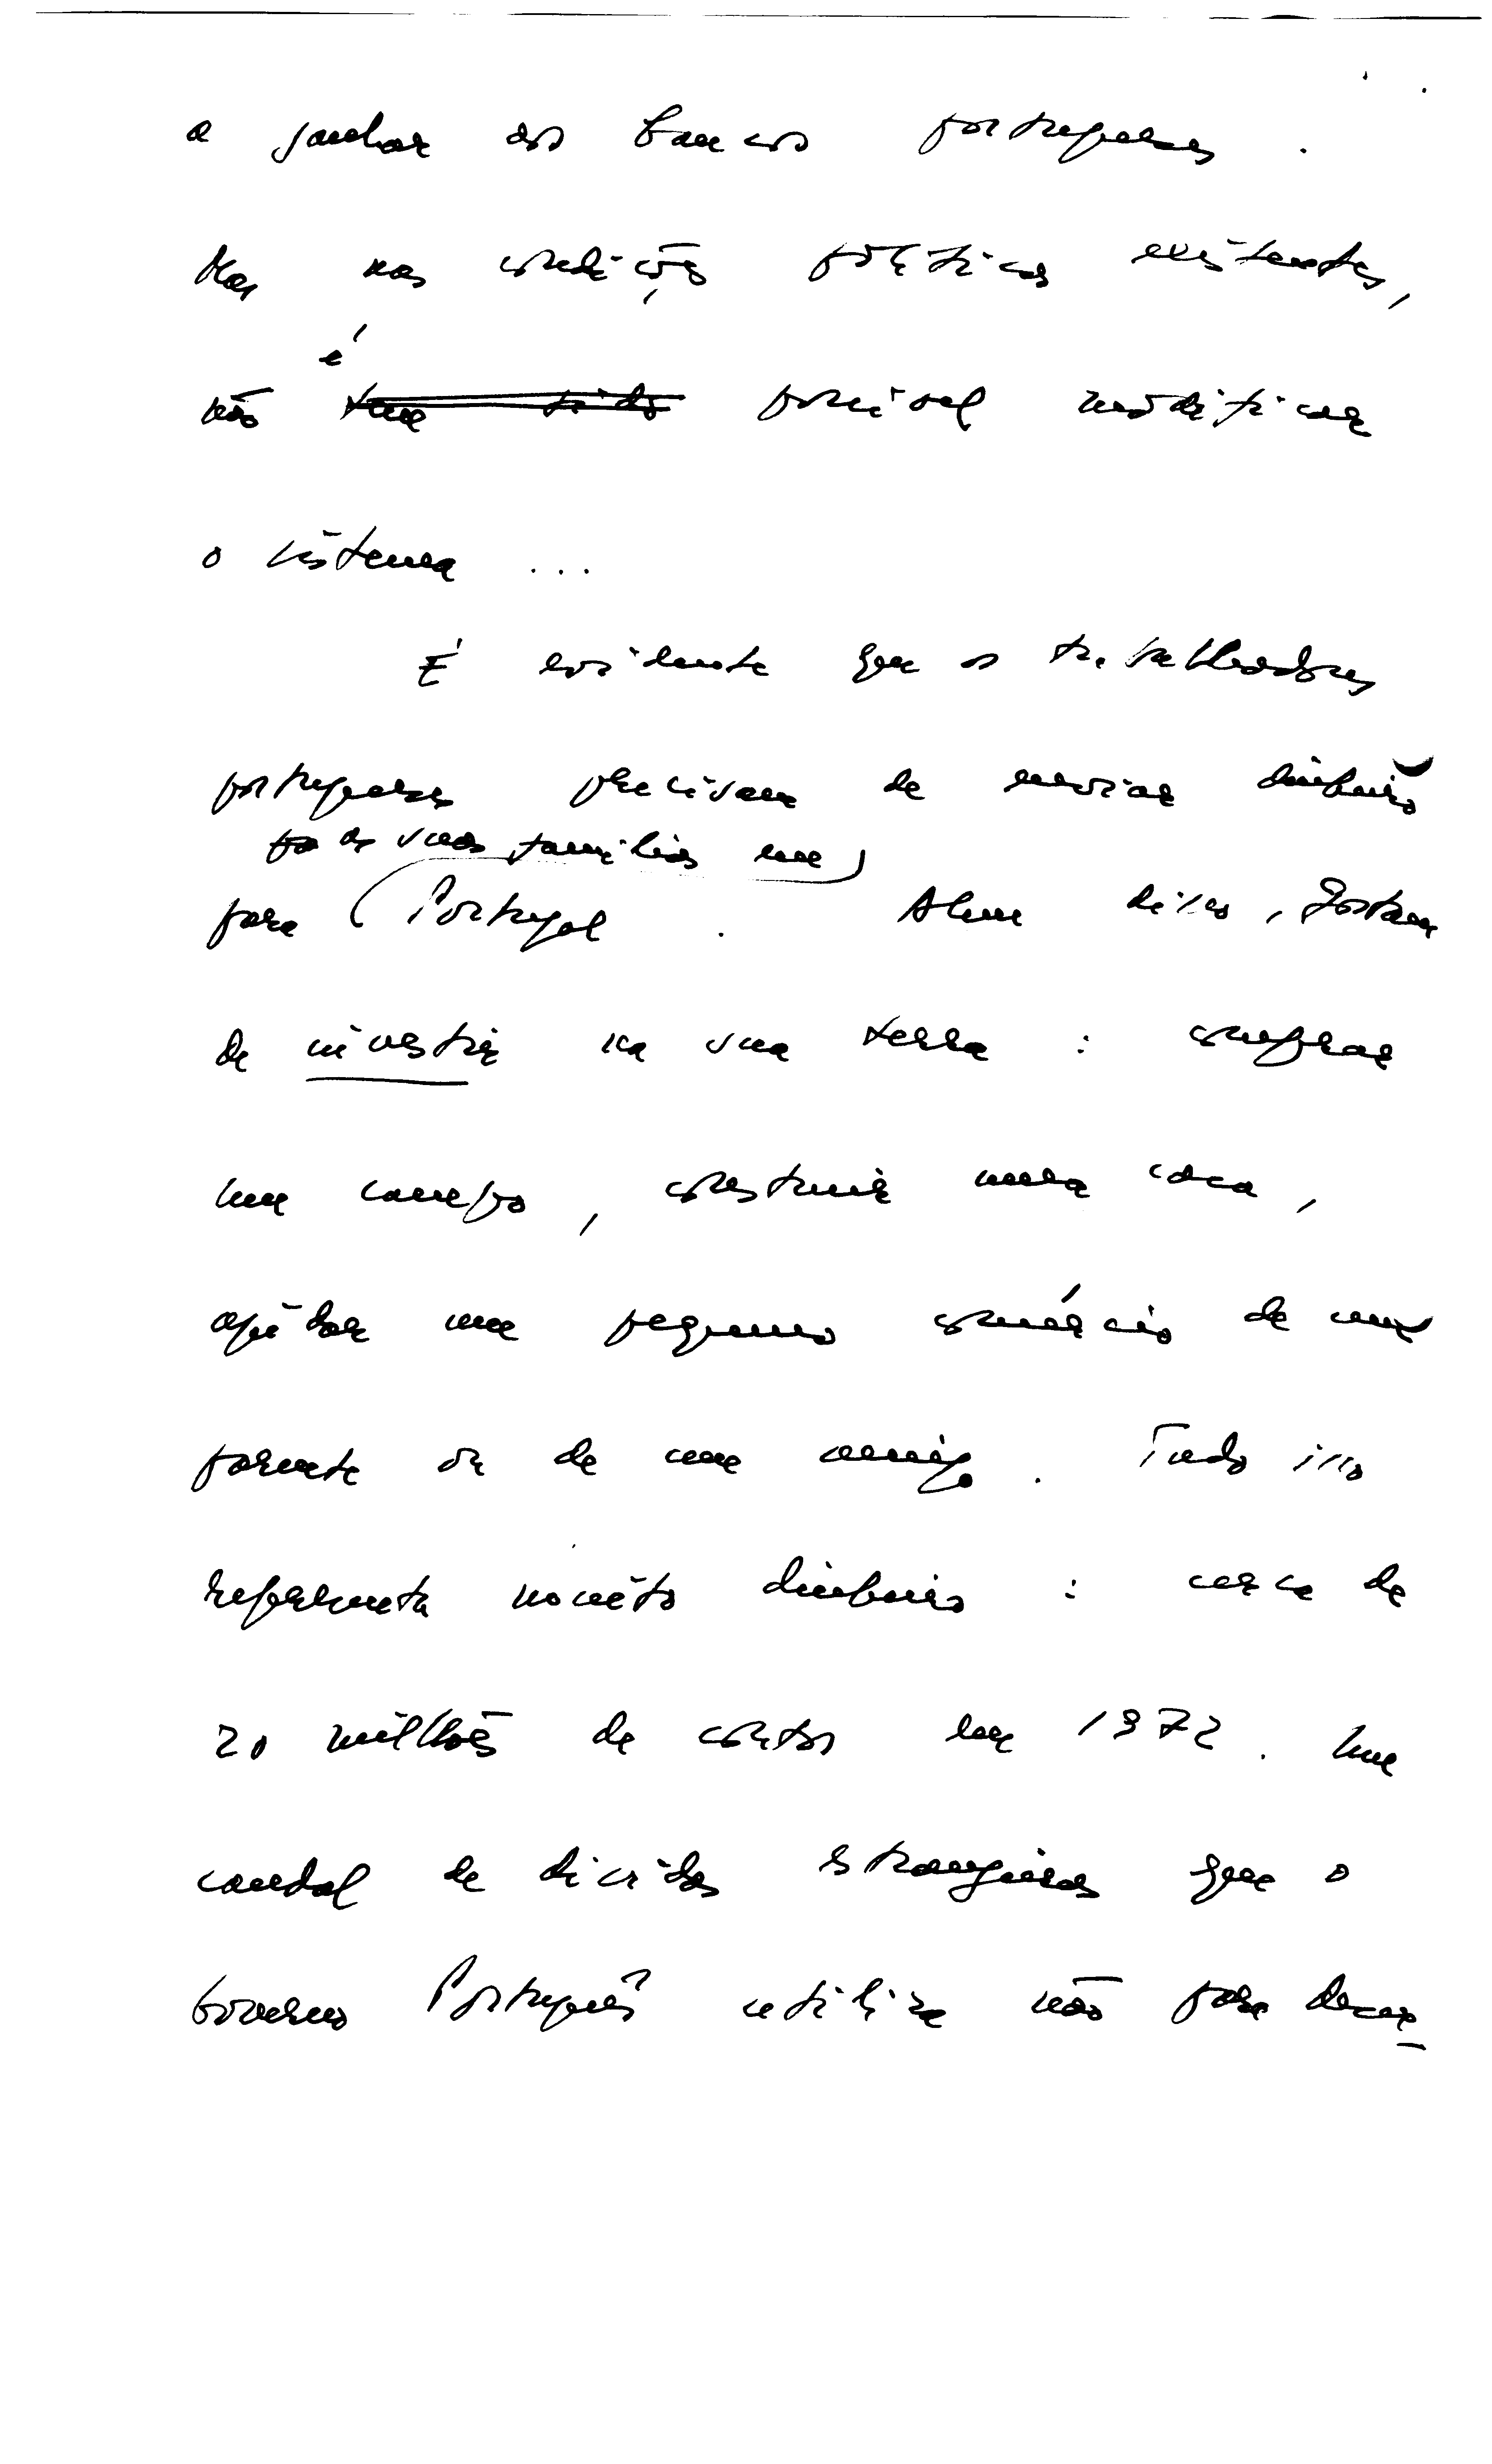 a ganhar os bancos portugueses.
Mas nas condições políticas existentes,
é
não tem sido possível modificar
o sistema ...
É evidente que os trabalhadores
portugueses precisam de enviar dinheiro
as suas famílias em
para Portugal. Alem disso, gostam
de investir na sua terra : comprar
um campo, construir uma casa,
ajudar um pequeno comércio de um
parente ou de um amigo. Tudo isso
representa muito dinheiro : cerca de
20 milhões de contos em 1972. Um
caudal de divisas estrangeiras que o
Governo Português utiliza não para